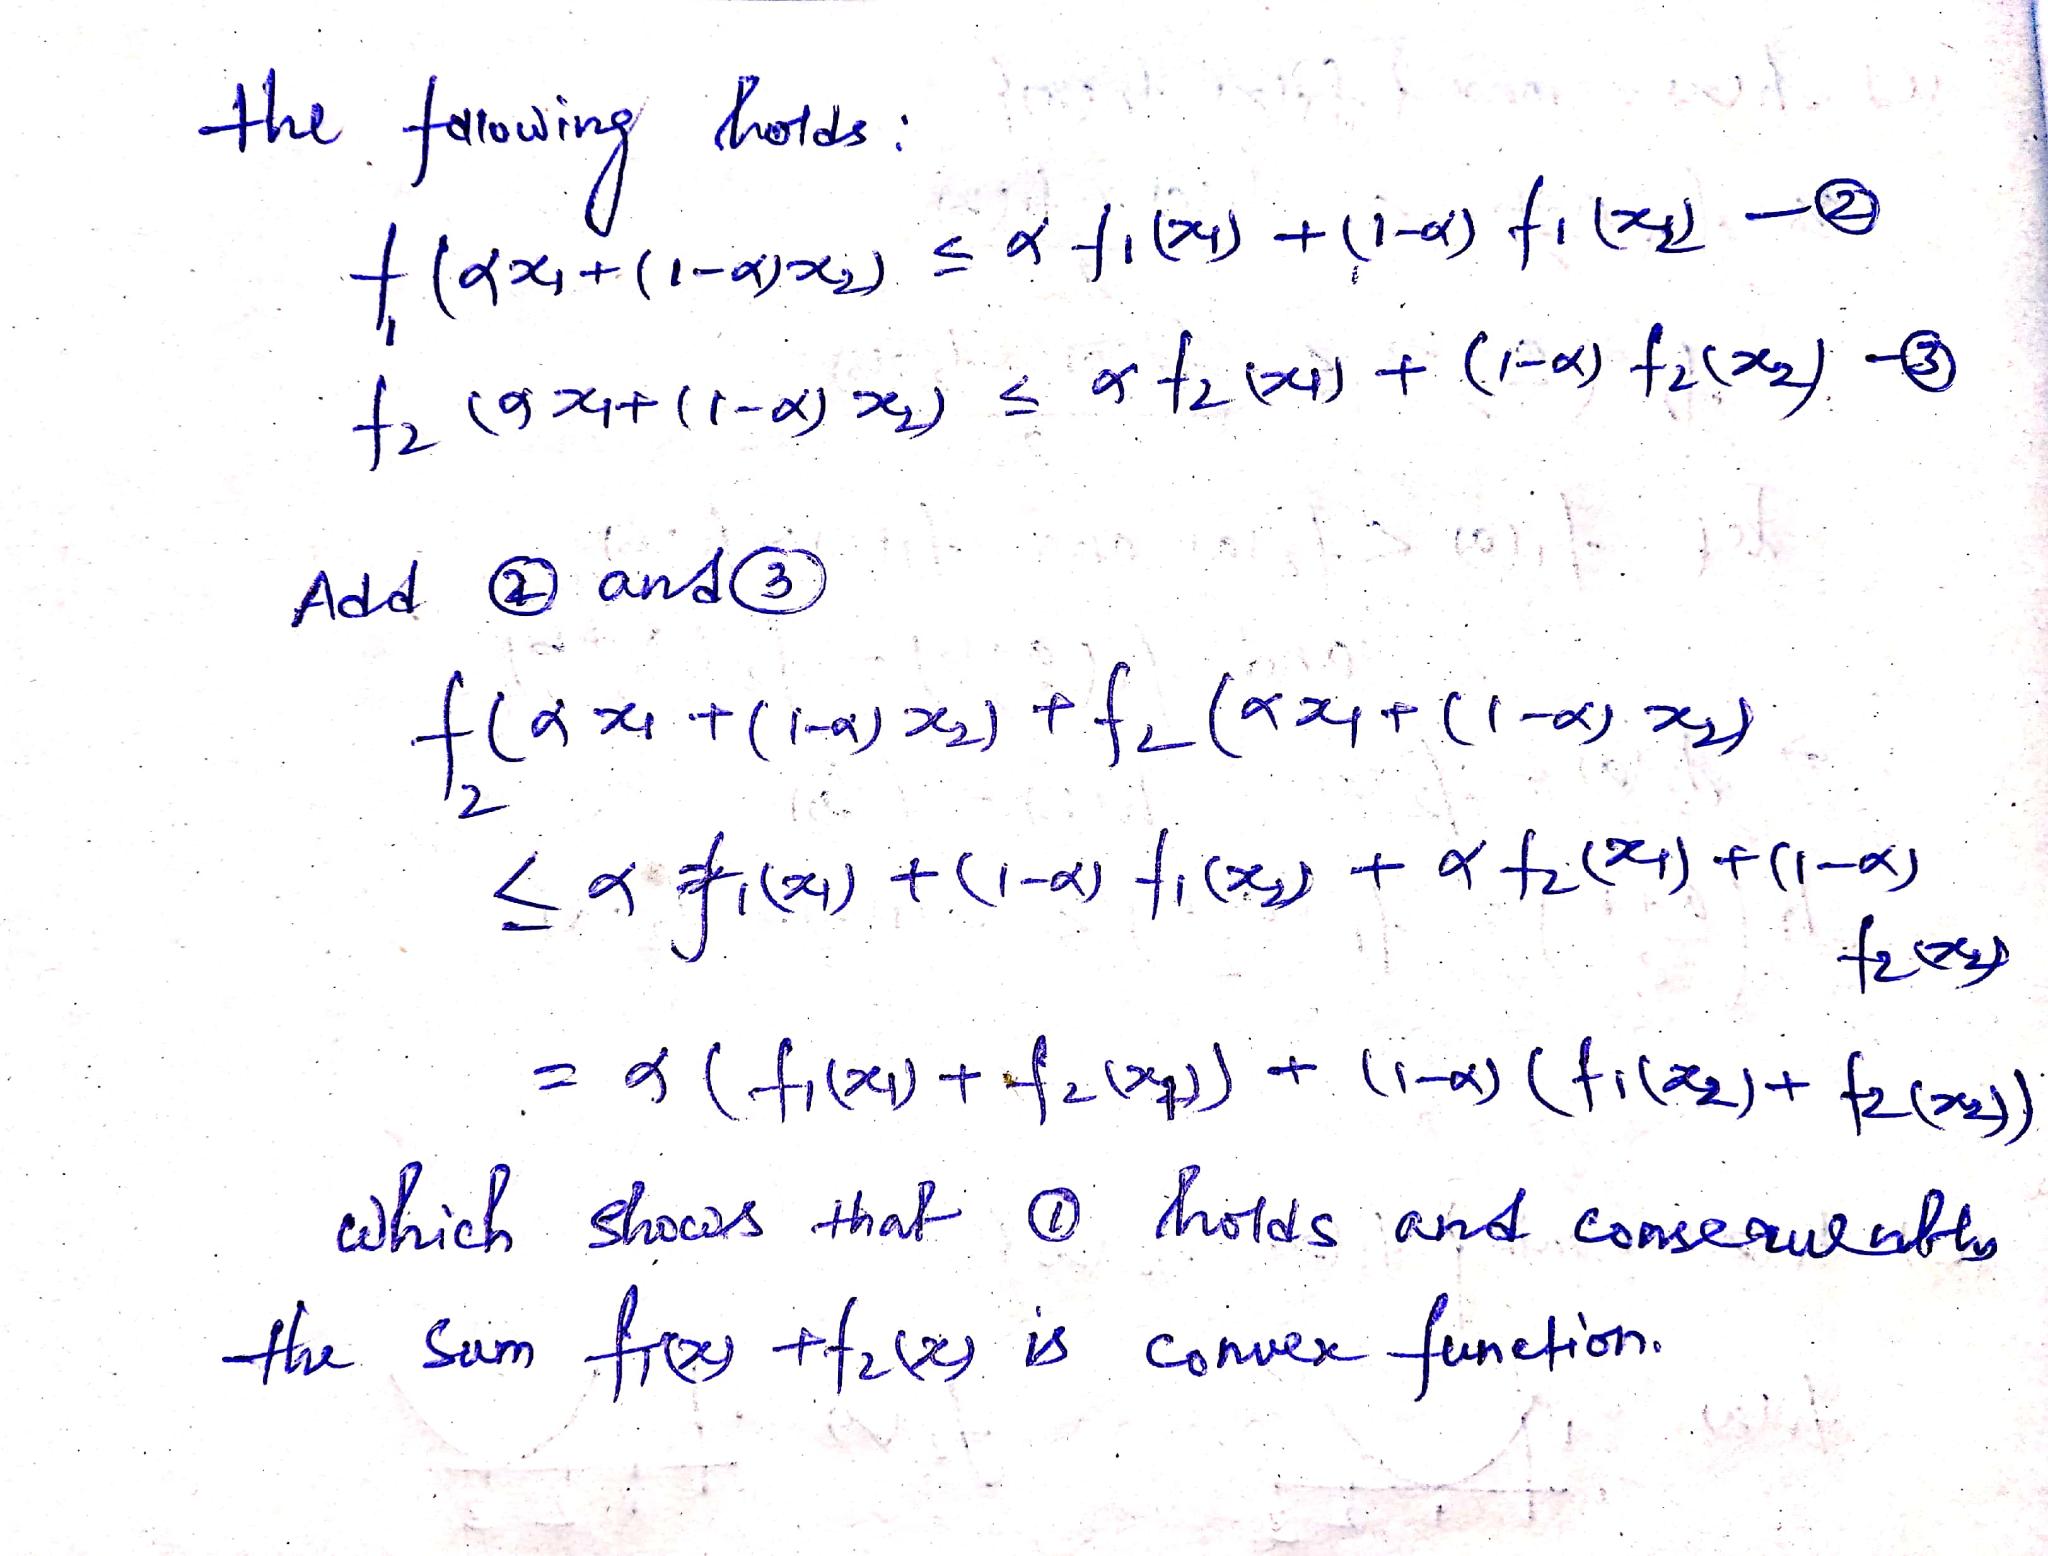 the following holds:
f₁(αx₁+(1-α)x₂) ≤ α f₁(x₁) + (1-α) f₁(x₂) — ②
f₂(αx₁+(1-α)x₂) ≤ α f₂(x₁) + (1-α) f₂(x₂) — ③
Add ② and ③
f₂(αx₁+(1-α)x₂) + f₂(αx₁+(1-α)x₂)
≤ α f₁(x₁) + (1-α) f₁(x₂) + α f₂(x₁) + (1-α)
f₂(x₂)
= α (f₁(x₁) + f₂(x₁)) + (1-α) (f₁(x₂) + f₂(x₂))
which shows that ① holds and consequently
the sum f₁(x) + f₂(x) is convex function.